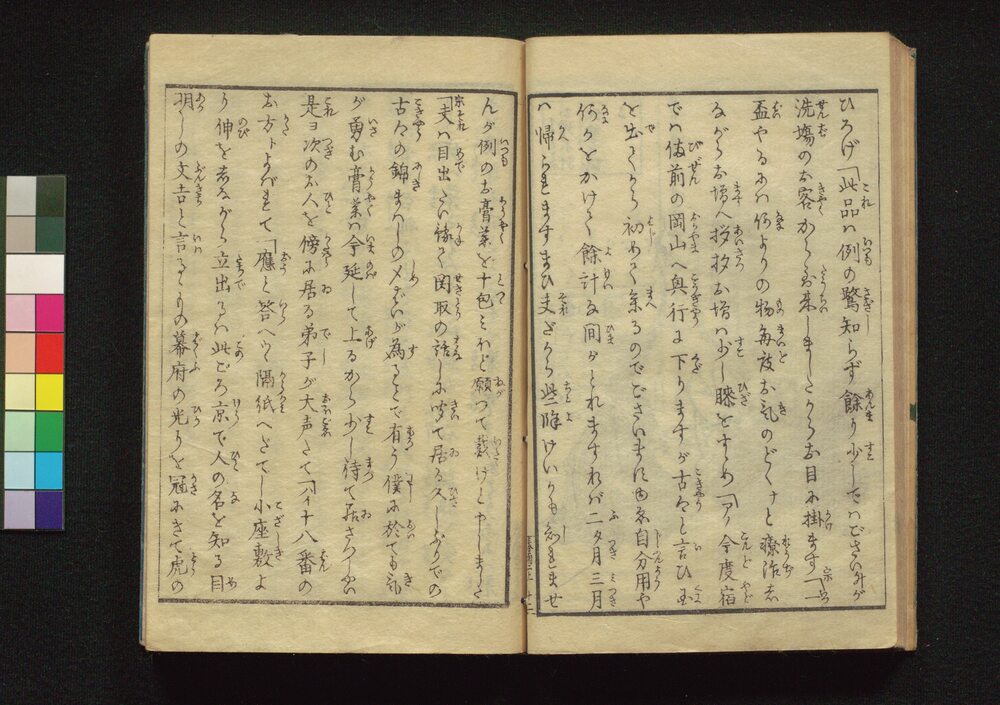 ひろげ「此品ハ例の鷺知らず餘り少しでハございますが
洗場のお客からお到来しましたからお目に掛ます「
盃やるにハ何よりの物毎度お氣のどくナと療治し
ながらお増へ挨拶お増ハ少し膝をすゝめ「アノ今度宿
でハ備前の岡山へ興行に下りますが古今と言ひ玉
を出てから初めて参るのでございますに自分用や
何かをかけて餘計な間がとれますれバ二タ月三月
ハ帰られますまひ夫だから些除けいかも知れませ
んが例のお膏薬を十包ミほど願つて載けとやしました
「夫ハ目出たい除て関取の話しに聞て居る久しぶりでの
古今の錦まハしの〆ぞいが為るとで有う僕に於ても
が勇む膏薬ハ今延して上るから少し待て居さつしやい
是ヨ次のお人を傍に居る弟子が大声たて「ハイ十八番の
お方トよばれて「應と答へつゝ隔紙へだてし小座敷よ
り伸をしながら立出るハ此ごろ京で人の名を知る目
明しの文吉と言るゝもの幕府の光りを冠にきて虎の